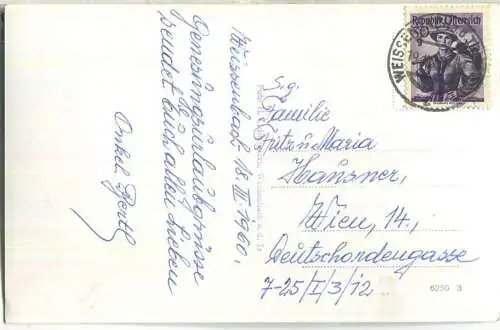 Weissenbach 18.III.1960.
Genesungsurlaubsgrüsse
sendet Euch allen Lieben
Onkel
Sg.
Familie
Fritz u Maria
Hausner,
Wien, 14.,
Deutschordengasse
7-25/I/3/12
Republik Österreich
WEISSENBACH
6250 3